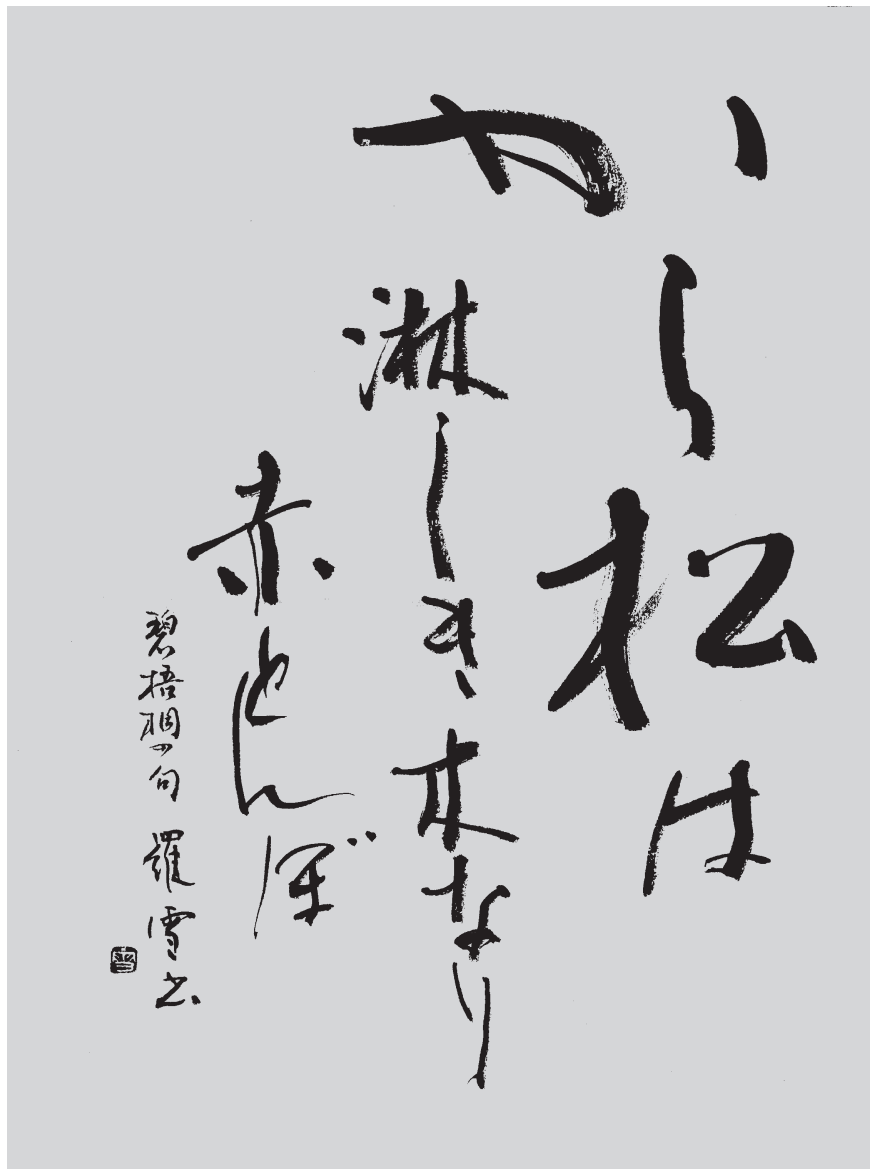 から松は
淋しき木なり
赤とんぼ
碧梧桐の句 羅雪書